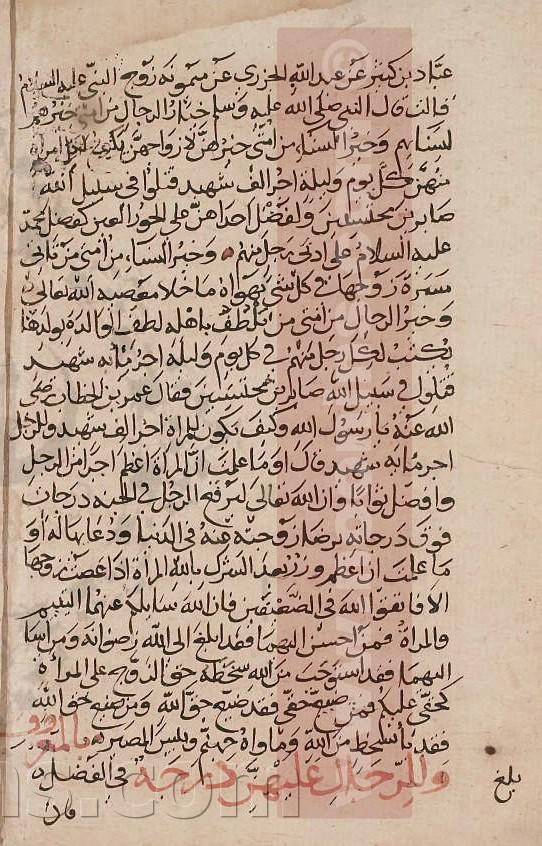 عباد بن كثير عن عبد الله الجزري عن ميمونه زوج النبي عليه السلام
قالت قال النبي صلى الله عليه وسلم خيار الرجال من امتي خيرهم
لنسايهم وخير النساء من امتي خيرهن لازواجهن يكتب لكل امراه
منهن كل يوم وليلة اجر الف شهيد قتلوا في سبيل الله
صابرين محتسبين ولفضل احداهن على الحور العين كفضل محمد
عليه السلام على ادنى رجل منهم وخير النساء من امتي من تاتي
مسرة زوجها في كل شي يهواه ما خلا معصيه الله تعالى
وخير الرجال من امتي من يلطف باهله لطف الوالده بولدها
يكتب لكل رجل منهم في كل يوم وليلة اجر مايه شهيد
قتلوا في سبيل الله صابرين محتسبين فقال عمر بن الخطاب رضي
الله عنه يا رسول الله وكيف يكون للمراة اجر الف شهيد وللرجل
اجر مايه شهيد قال او ما علمت ان المراة اعظم اجرا من الرجل
وافضل ثوابا وان الله تعالى ليرفع الرجل في الجنه درجات
فوق درجاته برضا زوجته عنه في الدنيا ودعايها له او
ما علمت ان اعظم وزر بعد الشرك بالله المراة اذا عصت زوجها
الا فاتقوا الله في الضعيفين فان الله سايلكم عنهما اليتيم
والمراة فمن احسن اليهما فقد ابلغ الى الله رضوانه ومن اسا
اليهما فقد استوجب من الله سخطه حق الزوج على المراة
كحقي عليكم فمن ضيع حقي فقد ضيع حق الله ومن ضيع حق الله
فقد باء بسخط من الله وماواه جهنم وبيس المصير بالمعروف
وللرجال عليهن درجة في الفضل
بلغ